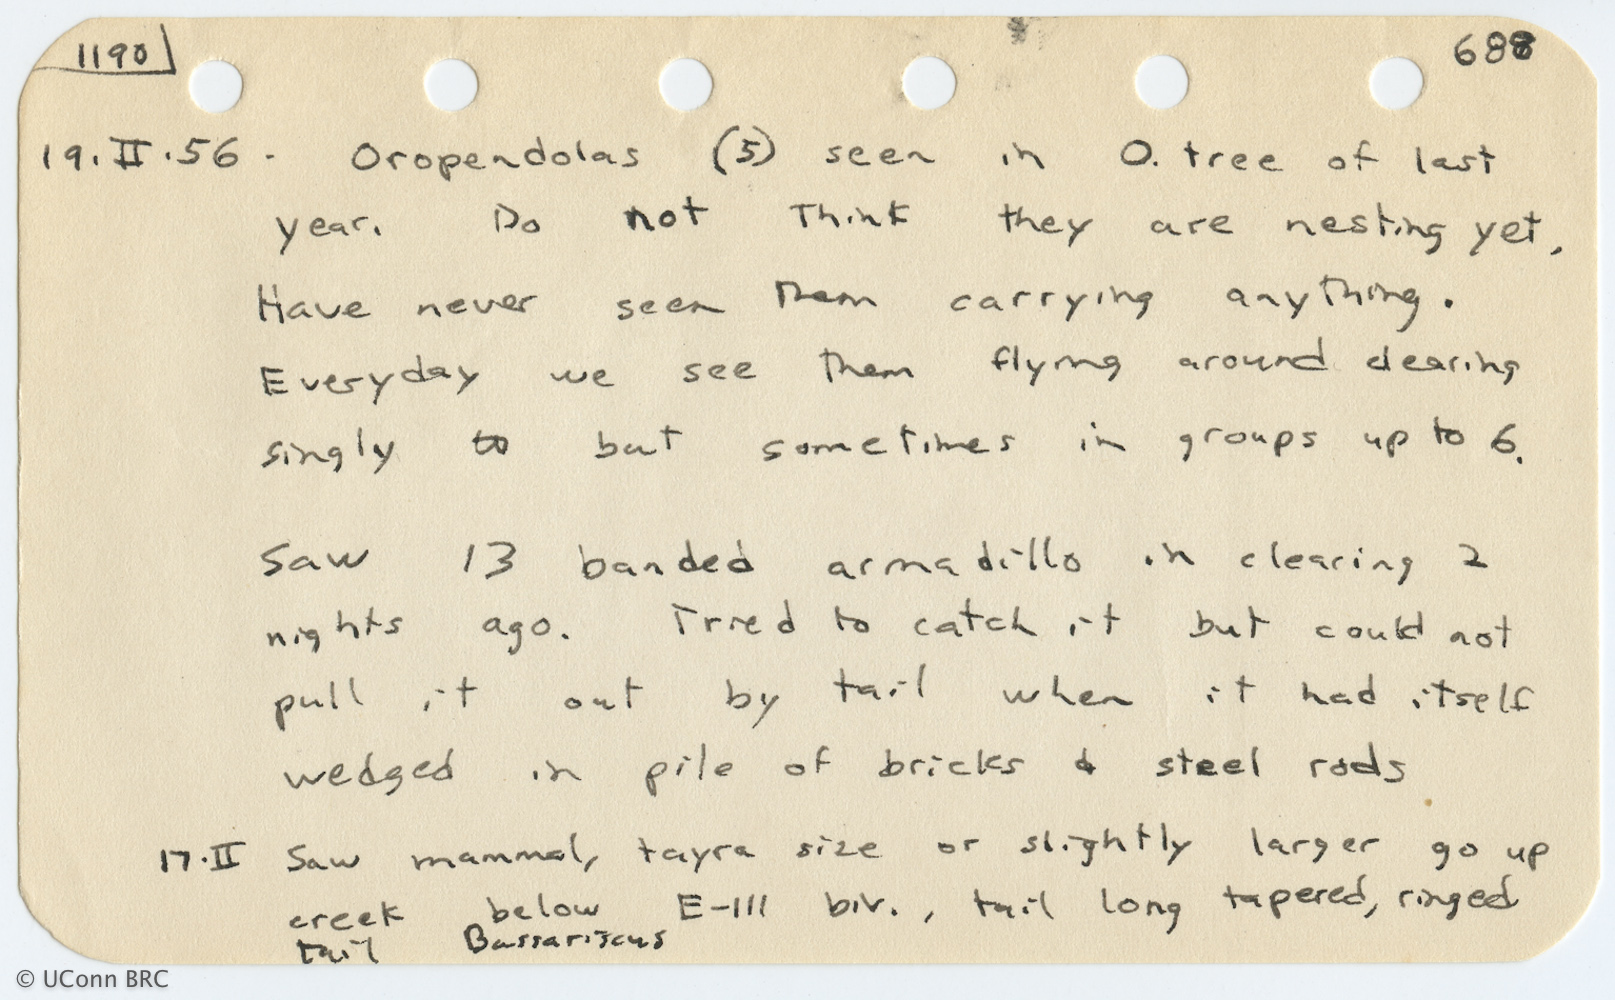 1190
688
19.II.56 - Oropendolas (5) seen in O. tree of last
year. Do not Think they are nesting yet.
Have never seen Them carrying anything.
Everyday we see Them flying around clearing
singly to but sometimes in groups up to 6.
Saw 13 banded armadillo in clearing 2
nights ago. Tried to catch it but could not
pull it out by tail when it had itself
wedged in pile of bricks & steel rods
17.II Saw mammal, tayra size or slightly larger go up
creek below E-III biv., tail long tapered, ringed
tail Bassariscus
© UConn BRC